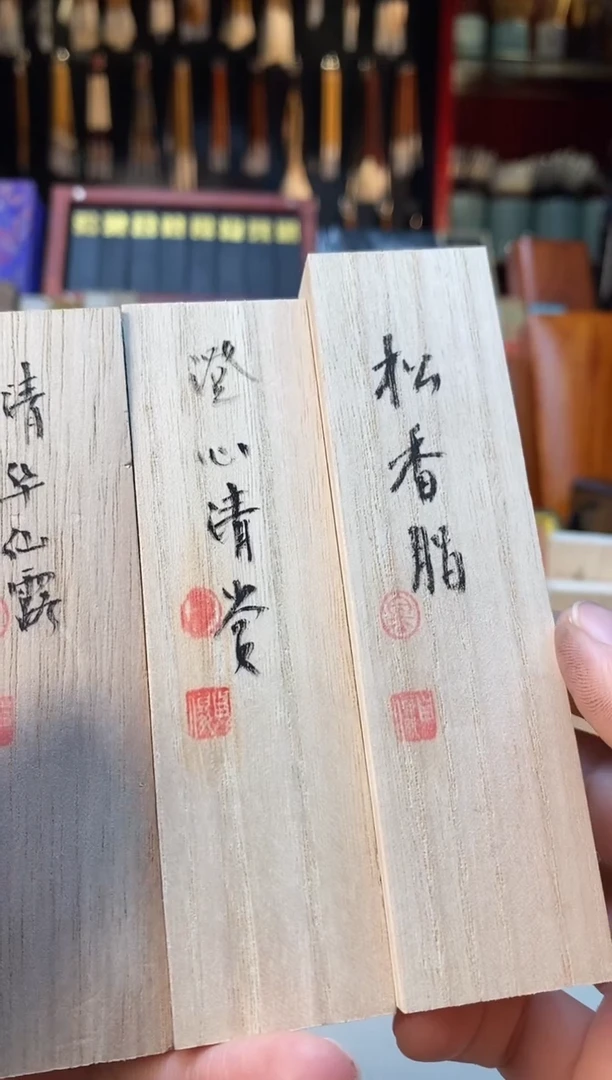 松香脂
澄心清赏
清华仙露